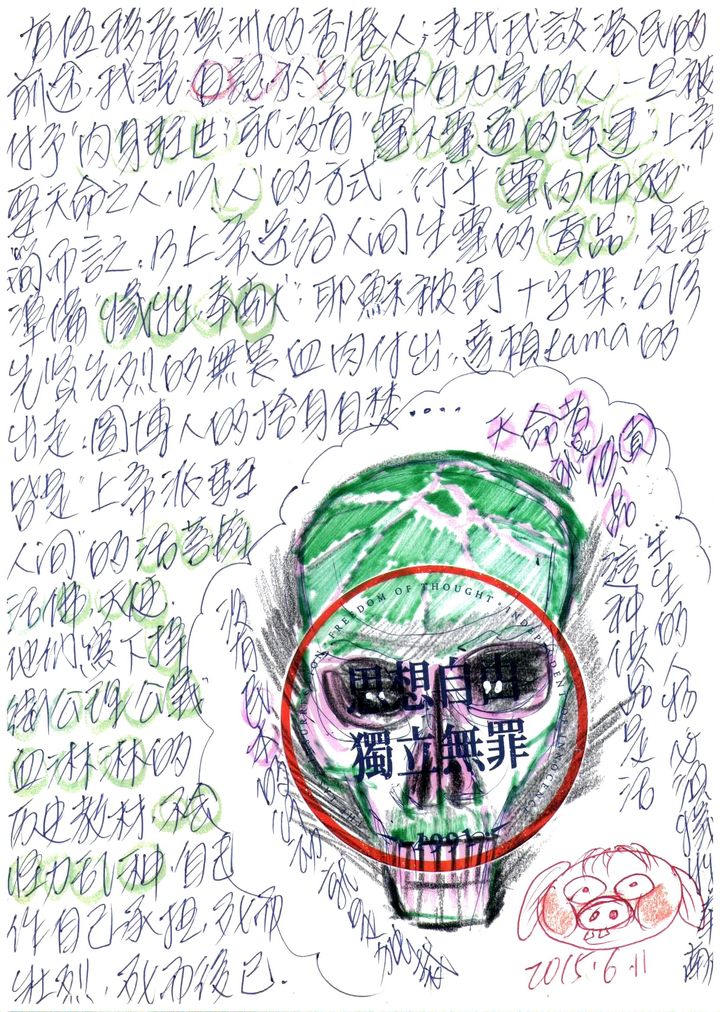 有位移居澳洲的香港人,來找我談港民的
前途,我說:自認於無形界有力量的人,一旦被
付予"肉身駐世"就沒有"靈不靈通的牽連",上帝
要天命之人,以"人"的方式,行于"靈肉佈施"
簡而言之,乃上帝送給人间生靈的"貢品",是要
準備"犧牲奉獻";耶穌被釘十字架,台湾
先賢先烈的無畏血肉付出,達賴Lama的
出走,圖博人的捨身自焚····
皆是"上帝派駐
人间"的活菩薩
活佛,天使,
他們寫下捍
衛"公理公義"
血淋淋的
历史教材,
怪力乱神,自己
作自己承担,死而
壯烈,死而後已.
天命者就似貢品
這種供品是活
生生的人物必須犧牲奉献
沒有
FREEDOM OF THOUGHT · INDEPENDENT INNOCENCE
思想自由
獨立無罪
1991
2015.6.11